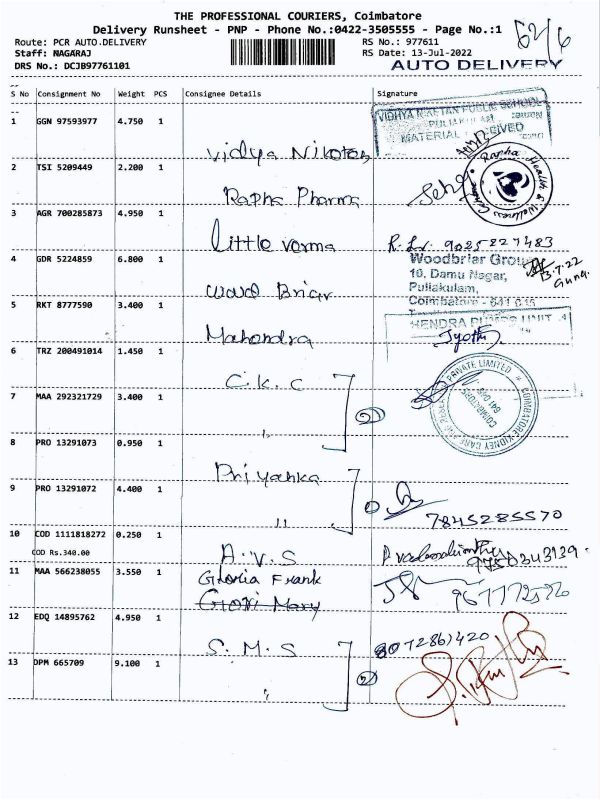 THE PROFESSIONAL COURIERS, Coimbatore
Delivery Runsheet - PNP - Phone No.:0422-3505555 - Page No.:1
62/6
Route: PCR AUTO.DELIVERY
RS No.: 977611
Staff: NAGARAJ
RS Date: 13-Jul-2022
DRS No.: DCJB97761101
AUTO DELIVERY
S No Consignment No Weight PCS Consignee Details Signature
1 GGN 97593977 4.750 1
VIDHYA NIKETAN PUBLIC SCHOOL
PULIAKULAM
MATERIAL RECEIVED
Vidya Nikotan
2 TSI 5209449 2.200 1
Rapha Health & Wellness
Rapha Pharma
3 AGR 700285873 4.950 1
Little Varma
9025827483
4 GDR 5224859 6.800 1
Woodbriar Group
10, Damu Nagar,
Puliakulam,
Coimbatore - 641 045
13.7.22
Guna.
Ward Briar
5 RKT 8777590 3.400 1
HENDRA PUMPS
Jyothi
Mahendra
6 TRZ 200491014 1.450 1
C.K.C
7 MAA 292321729 3.400 1
PRIVATE LIMITED
COIMBATORE KIDNEY
COIMBATORE
2
"
8 PRO 13291073 0.950 1
Priyanka
9 PRO 13291072 4.400 1
7845285570
"
10 COD 1111818272 0.250 1
COD Rs.340.00
A.V.S
9750343139
11 MAA 566238055 3.550 1
Gloria Frank
Gori Mary
12 EDQ 14895762 4.950 1
S.M.S
8072861420
13 DPM 665709 9.100 1
2
"